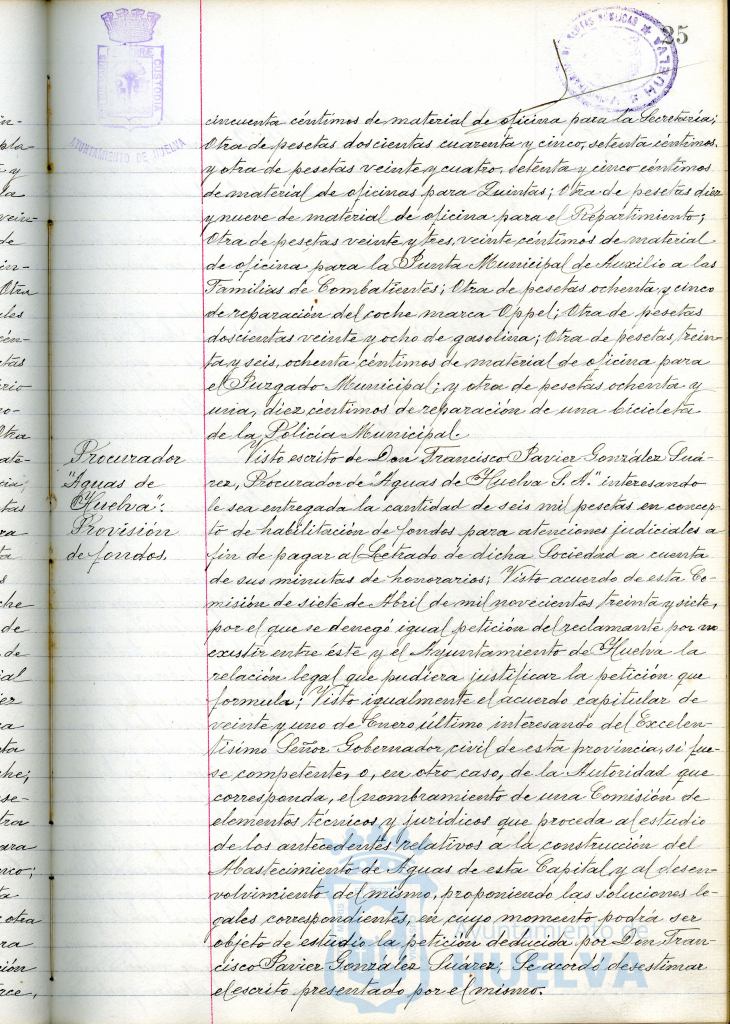 25
AYUNTAMIENTO DE HUELVA
CUSTODIA
HUELVA
cincuenta céntimos de material de oficina para la Secretaría;
Otra de pesetas doscientas cuarenta y cinco, setenta céntimos,
y otra de pesetas veinte y cuatro, setenta y cinco céntimos
de material de oficinas para Quintas; Otra de pesetas diez
y nueve de material de oficina para el Repartimiento;
Otra de pesetas veinte y tres, veinte céntimos de material
de oficina para la Junta Municipal de Auxilio a las
Familias de Combatientes; Otra de pesetas ochenta y cinco
de reparación del coche marca Oppel; Otra de pesetas
doscientas veinte y ocho de gasolina; Otra de pesetas trein-
ta y seis, ochenta céntimos de material de oficina para
el Juzgado Municipal; y otra de pesetas ochenta y
una, diez céntimos de reparación de una bicicleta
de la Policía Municipal.
Procurador
"Aguas de
Huelva".
Provisión
de fondos.
Visto escrito de Don Francisco Javier González Suá-
rez, Procurador de "Aguas de Huelva S. A." interesando
le sea entregada la cantidad de seis mil pesetas en concep-
to de habilitación de fondos para atenciones judiciales a
fin de pagar al Letrado de dicha Sociedad a cuenta
de sus minutas de honorarios; Visto acuerdo de esta Co-
misión de siete de Abril de mil novecientos treinta y siete,
por el que se denegó igual petición del reclamante por no
existir entre éste y el Ayuntamiento de Huelva la
relación legal que pudiera justificar la petición que
formula; Visto igualmente el acuerdo capitular de
veinte y uno de Enero último interesando del Excelen-
tísimo Señor Gobernador civil de esta provincia, si fue-
se competente, o, en otro caso, de la Autoridad que
corresponda, el nombramiento de una Comisión de
elementos técnicos y jurídicos que proceda al estudio
de los antecedentes relativos a la construcción del
Abastecimiento de Aguas de esta Capital y al desen-
volvimiento del mismo, proponiendo las soluciones le-
gales correspondientes, en cuyo momento podría ser
objeto de estudio la petición deducida por Don Fran-
cisco Javier González Suárez; Se acordó desestimar
el escrito presentado por el mismo.
Ayuntamiento de
HUELVA